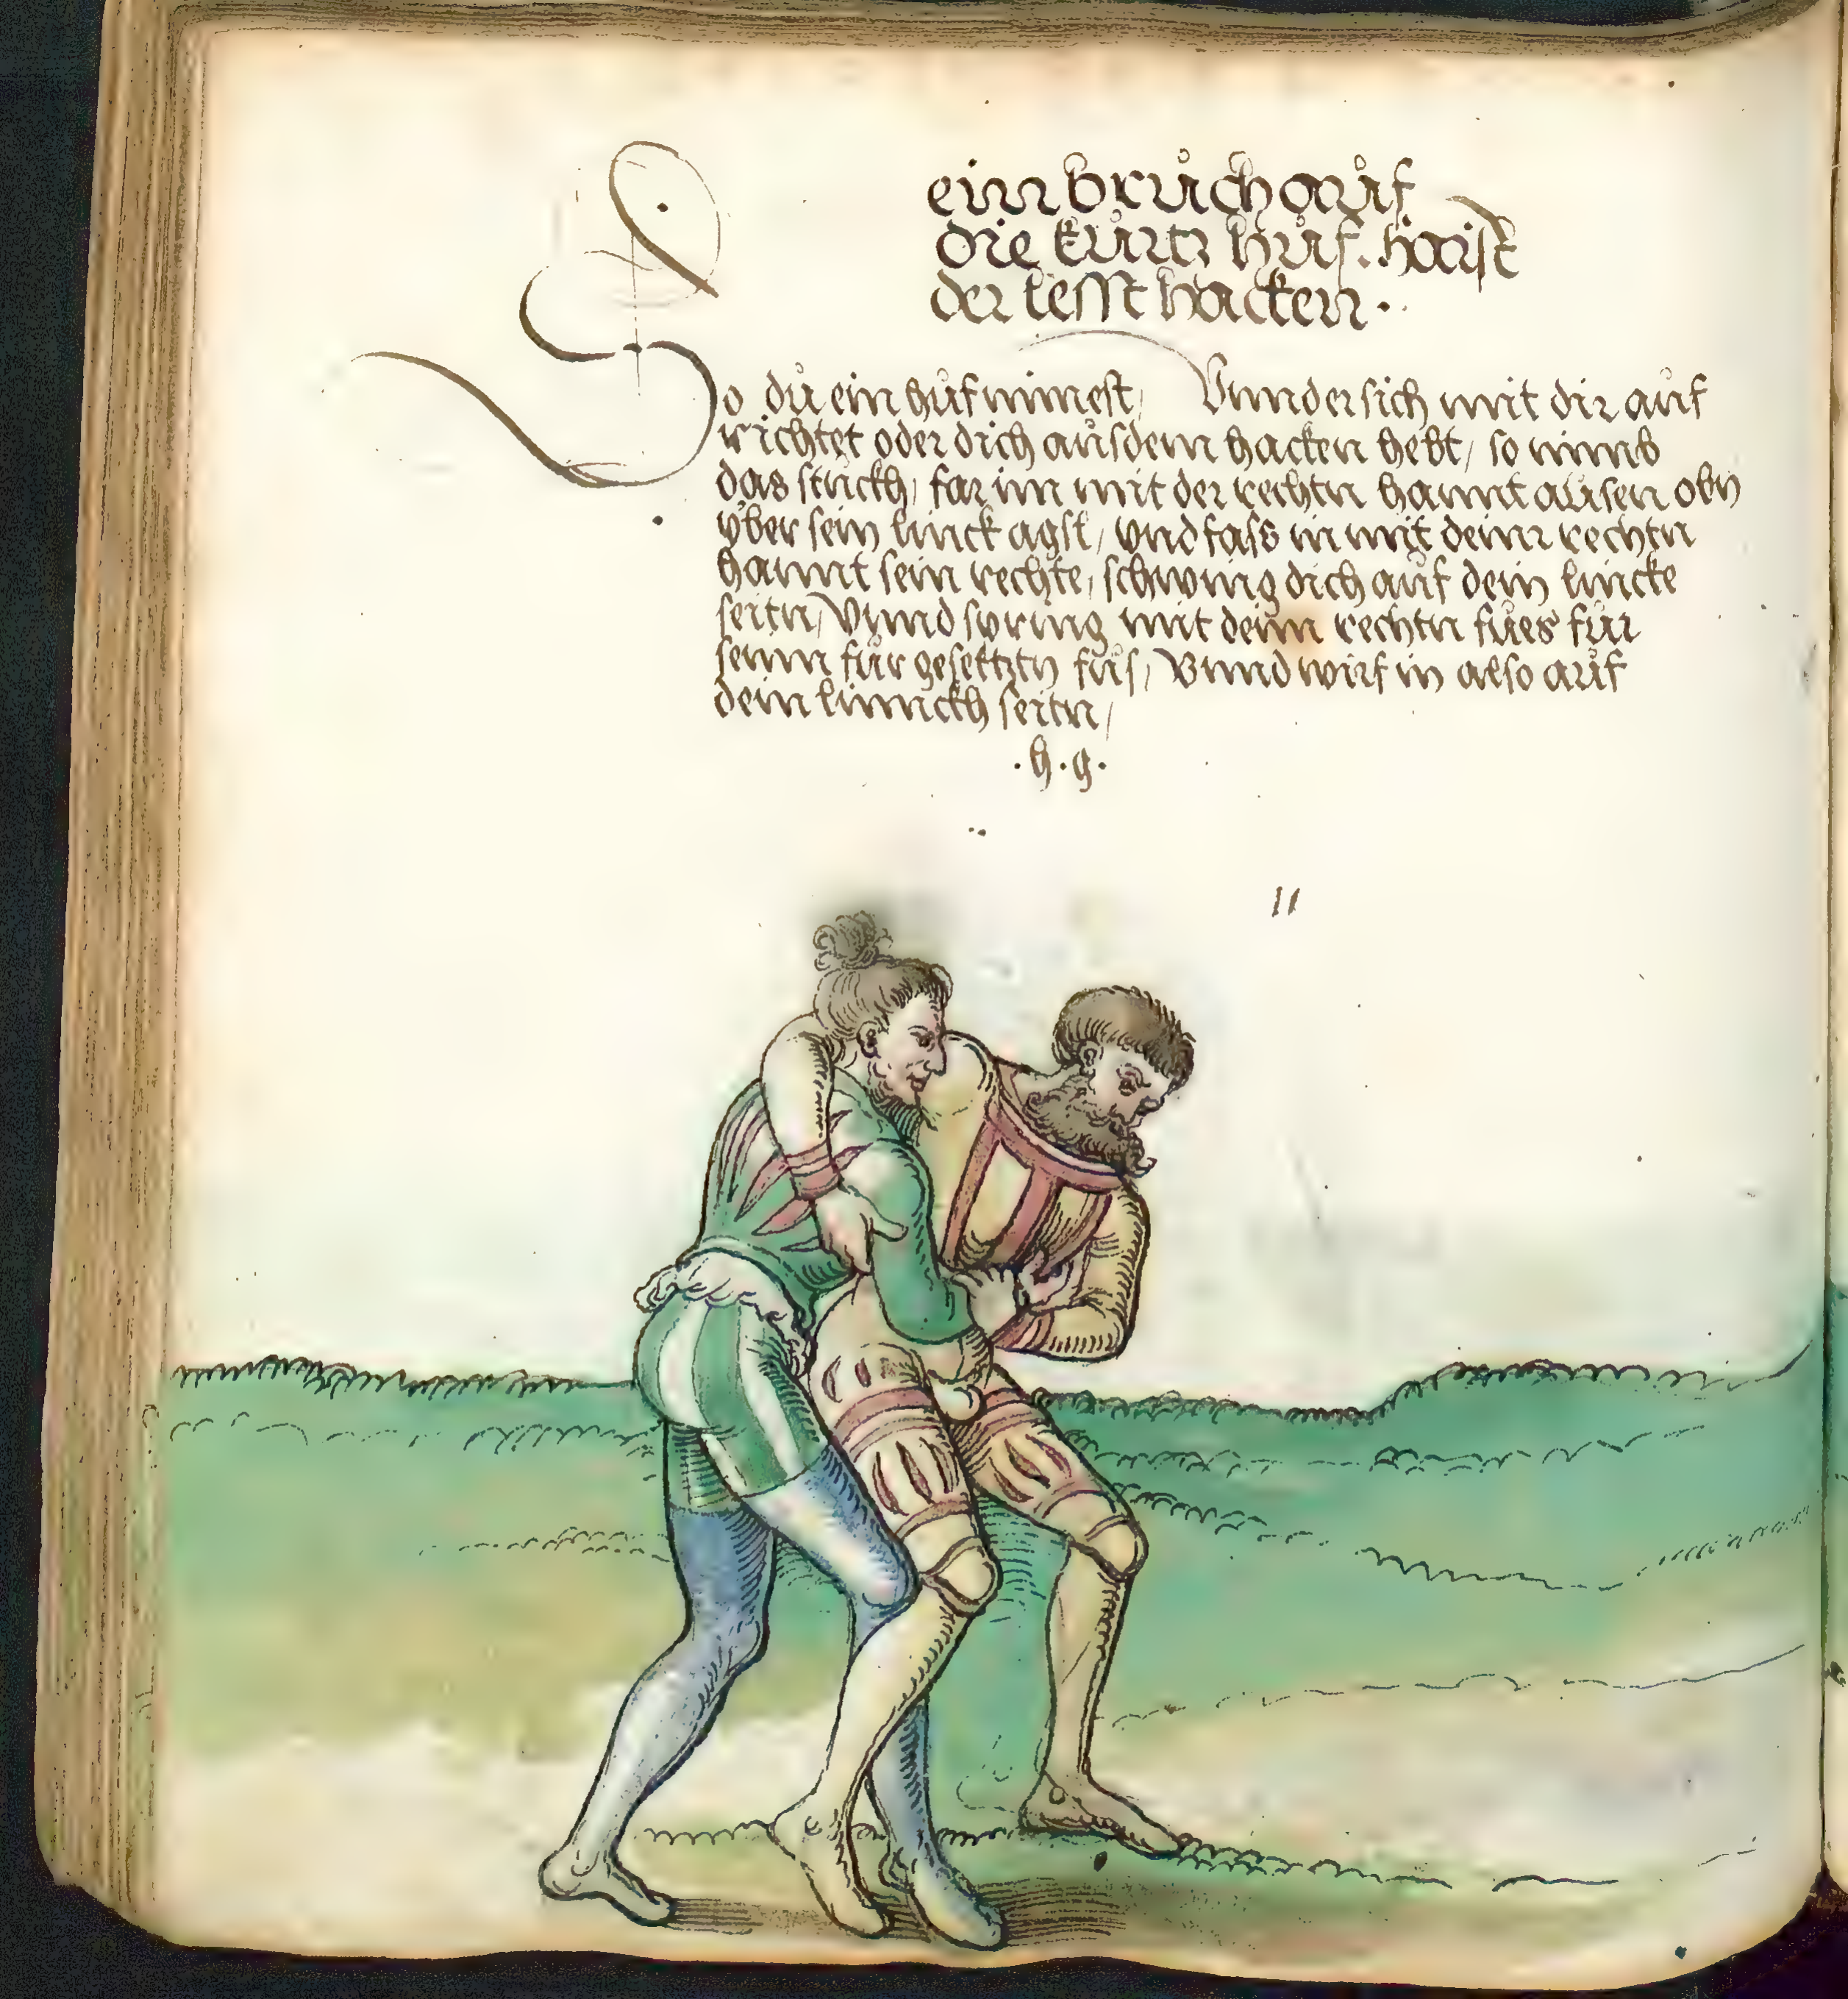 ein bruch auf
die kurtz huf. haist
der lesst hacken.
So du ein huf nimest, Vnnd er sich mit dir auf
richtet oder dich aus dem hacken hebt, so nimb
das stuckh, far im mit der rechtn hannt ausen obn
vber sein linck agsl, vnd fass in mit deinr rechtn
hannt sein rechte, schwing dich auf dein lincke
seitn, Vnnd spring mit deim rechtn fues fur
seinn fur gesetztn fus, Vnnd wirf in also auf
dein linnckh seitn,
.h.g.
11